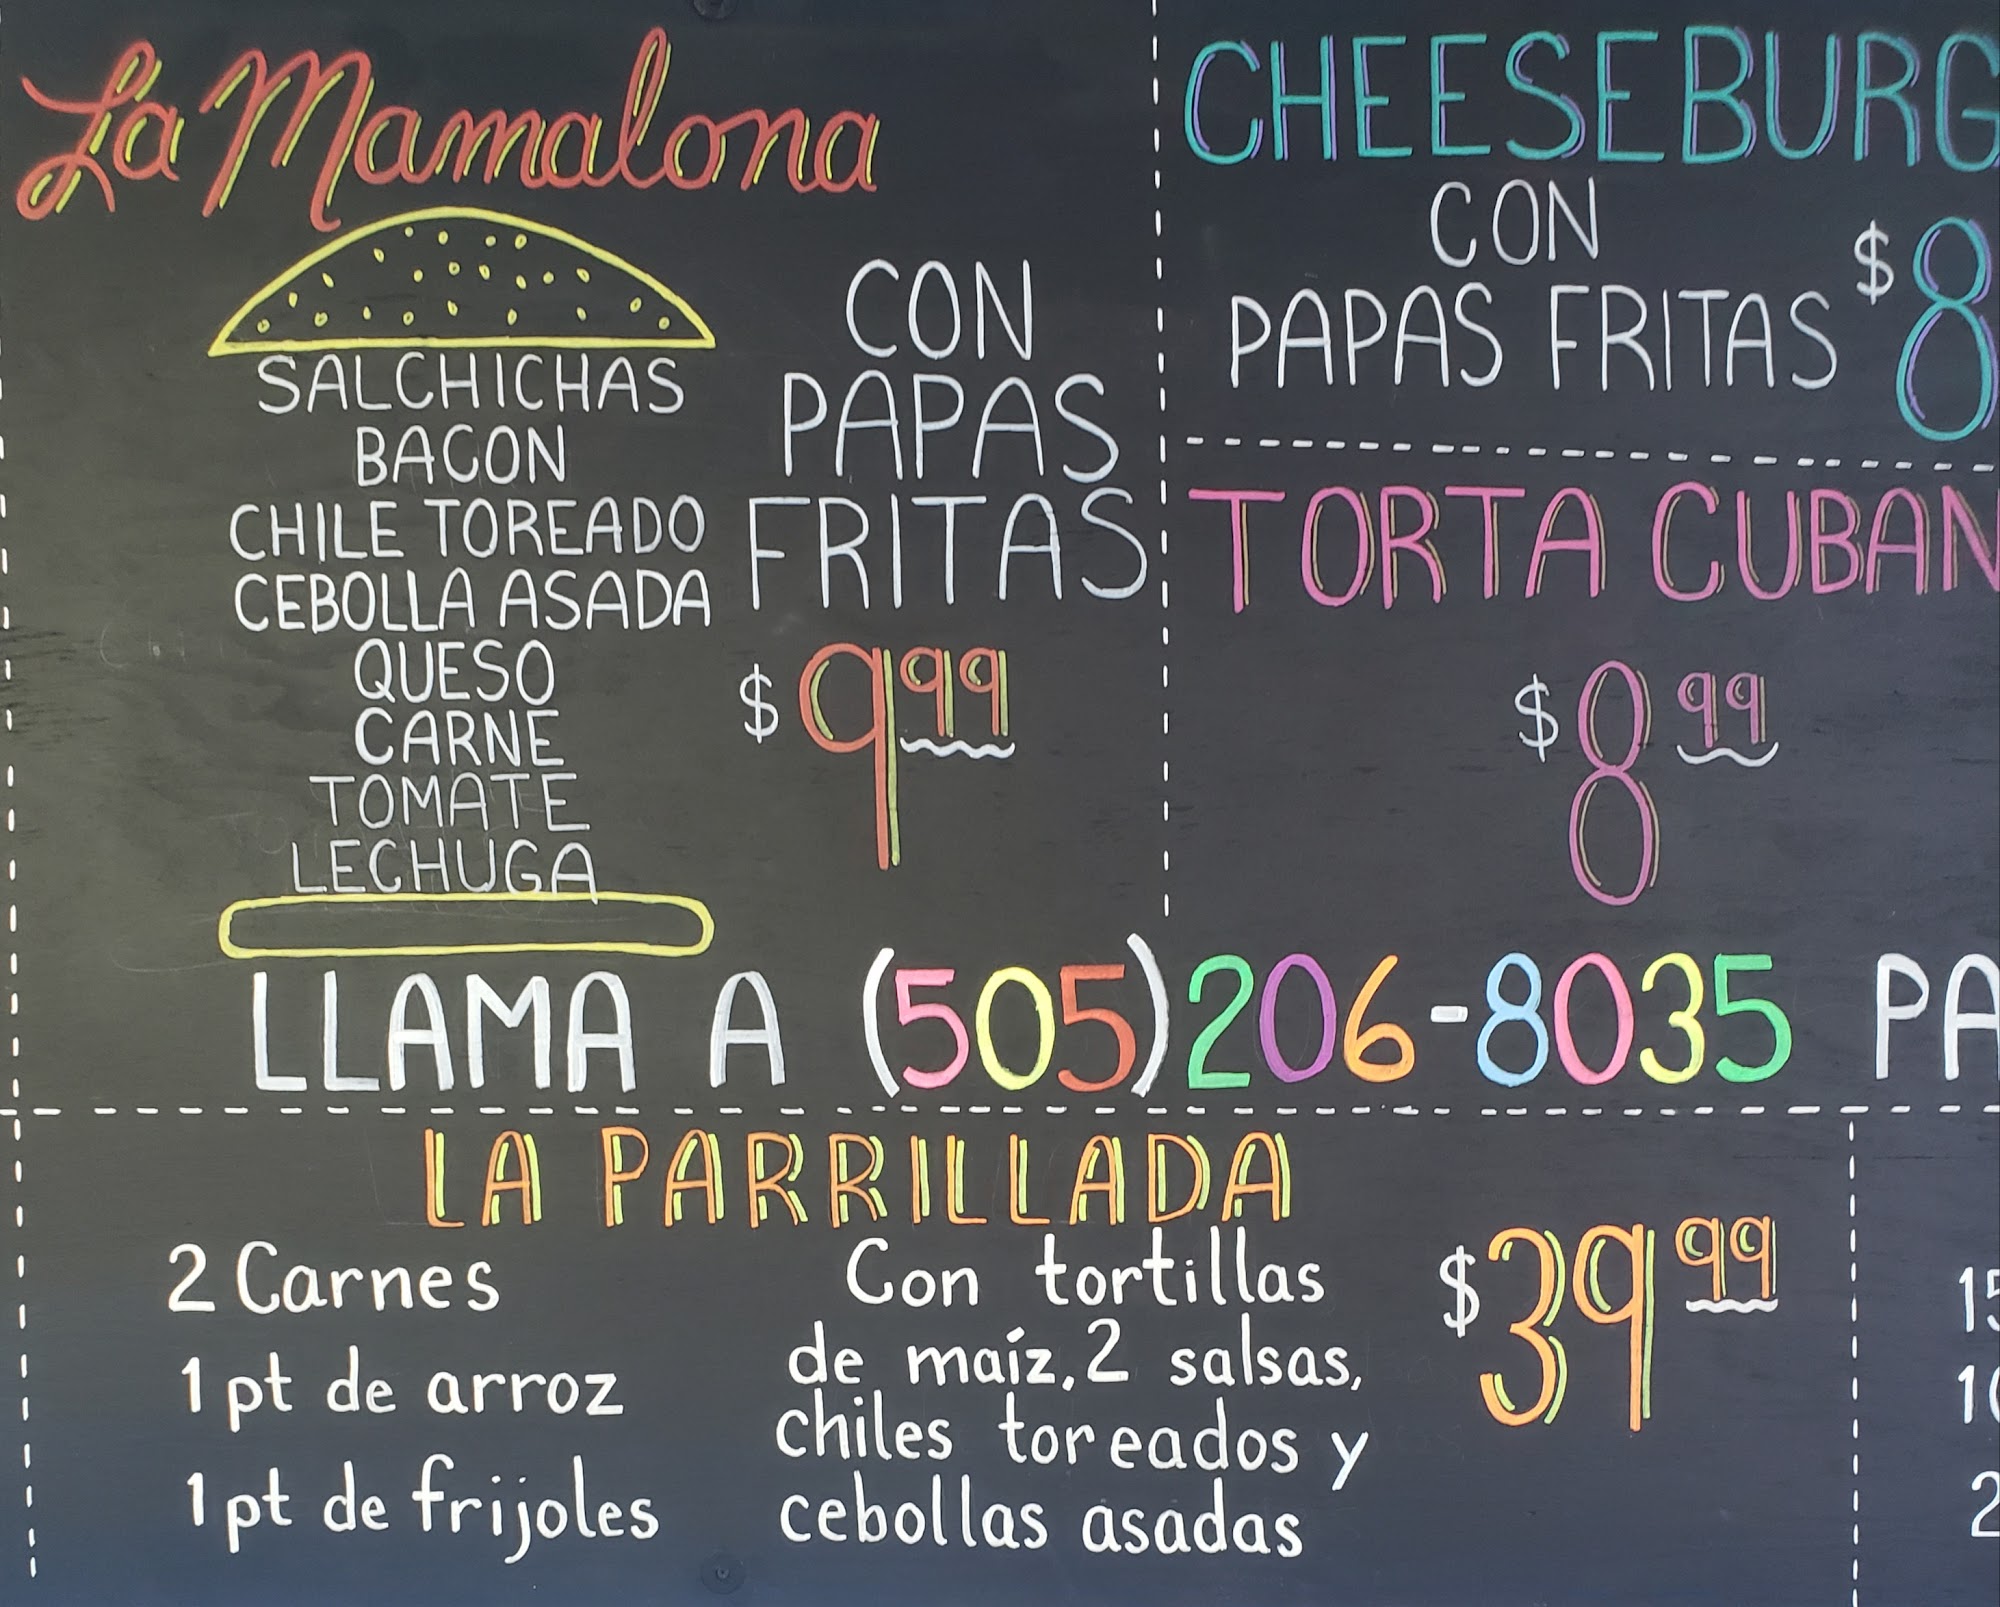 La Mamalona
SALCHICHAS
BACON
CHILE TOREADO
CEBOLLA ASADA
QUESO
CARNE
TOMATE
LECHUGA
CON
PAPAS
FRITAS
$9.99
CHEESEBURG
CON
PAPAS FRITAS
$8
TORTA CUBAN
$8.99
LLAMA A (505)206-8035 PA
LA PARRILLADA
2 Carnes
1 pt de arroz
1 pt de frijoles
Con tortillas
de maíz, 2 salsas,
chiles toreados y
cebollas asadas
$39.99
15
10
2